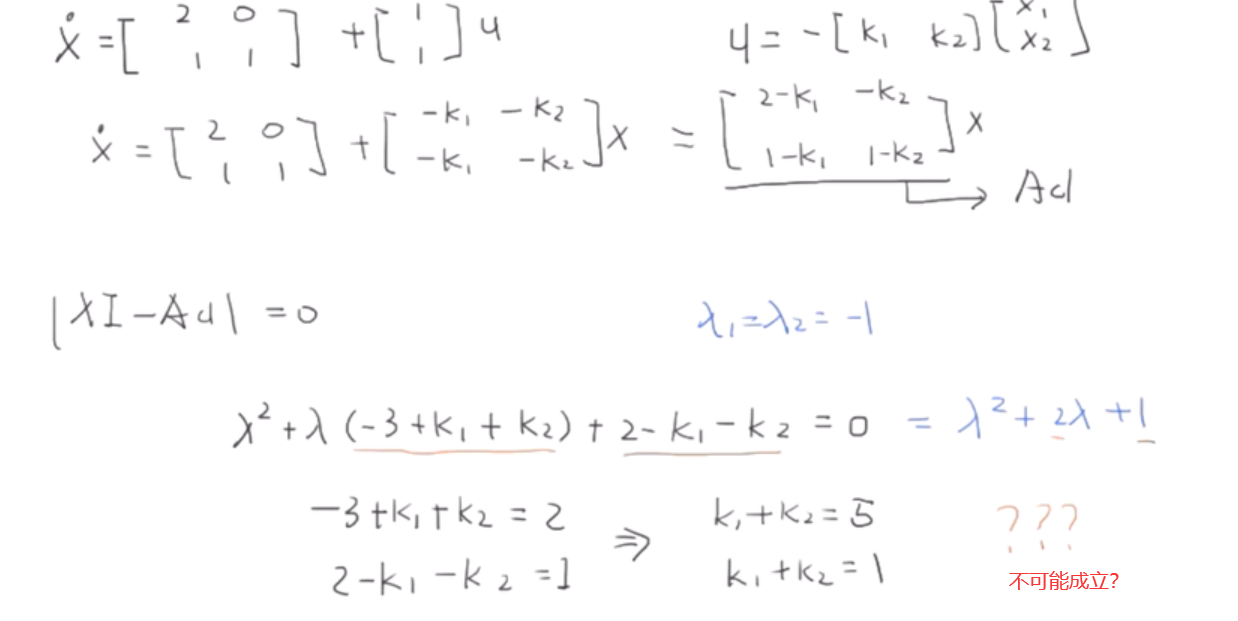 ẋ = [2 0; 1 1] + [1; 1] u  u = -[k₁ k₂][x₁; x₂]
ẋ = [2 0; 1 1] + [-k₁ -k₂; -k₁ -k₂] x = [2-k₁ -k₂; 1-k₁ 1-k₂] x
→ Acl
|λI - Acl| = 0  λ₁=λ₂= -1
λ² + λ (-3+k₁+k₂) + 2-k₁-k₂ = 0 = λ² + 2λ + 1
-3+k₁+k₂ = 2 ⇒ k₁+k₂ = 5 ???
2-k₁-k₂ = 1 k₁+k₂ = 1
不可能成立?